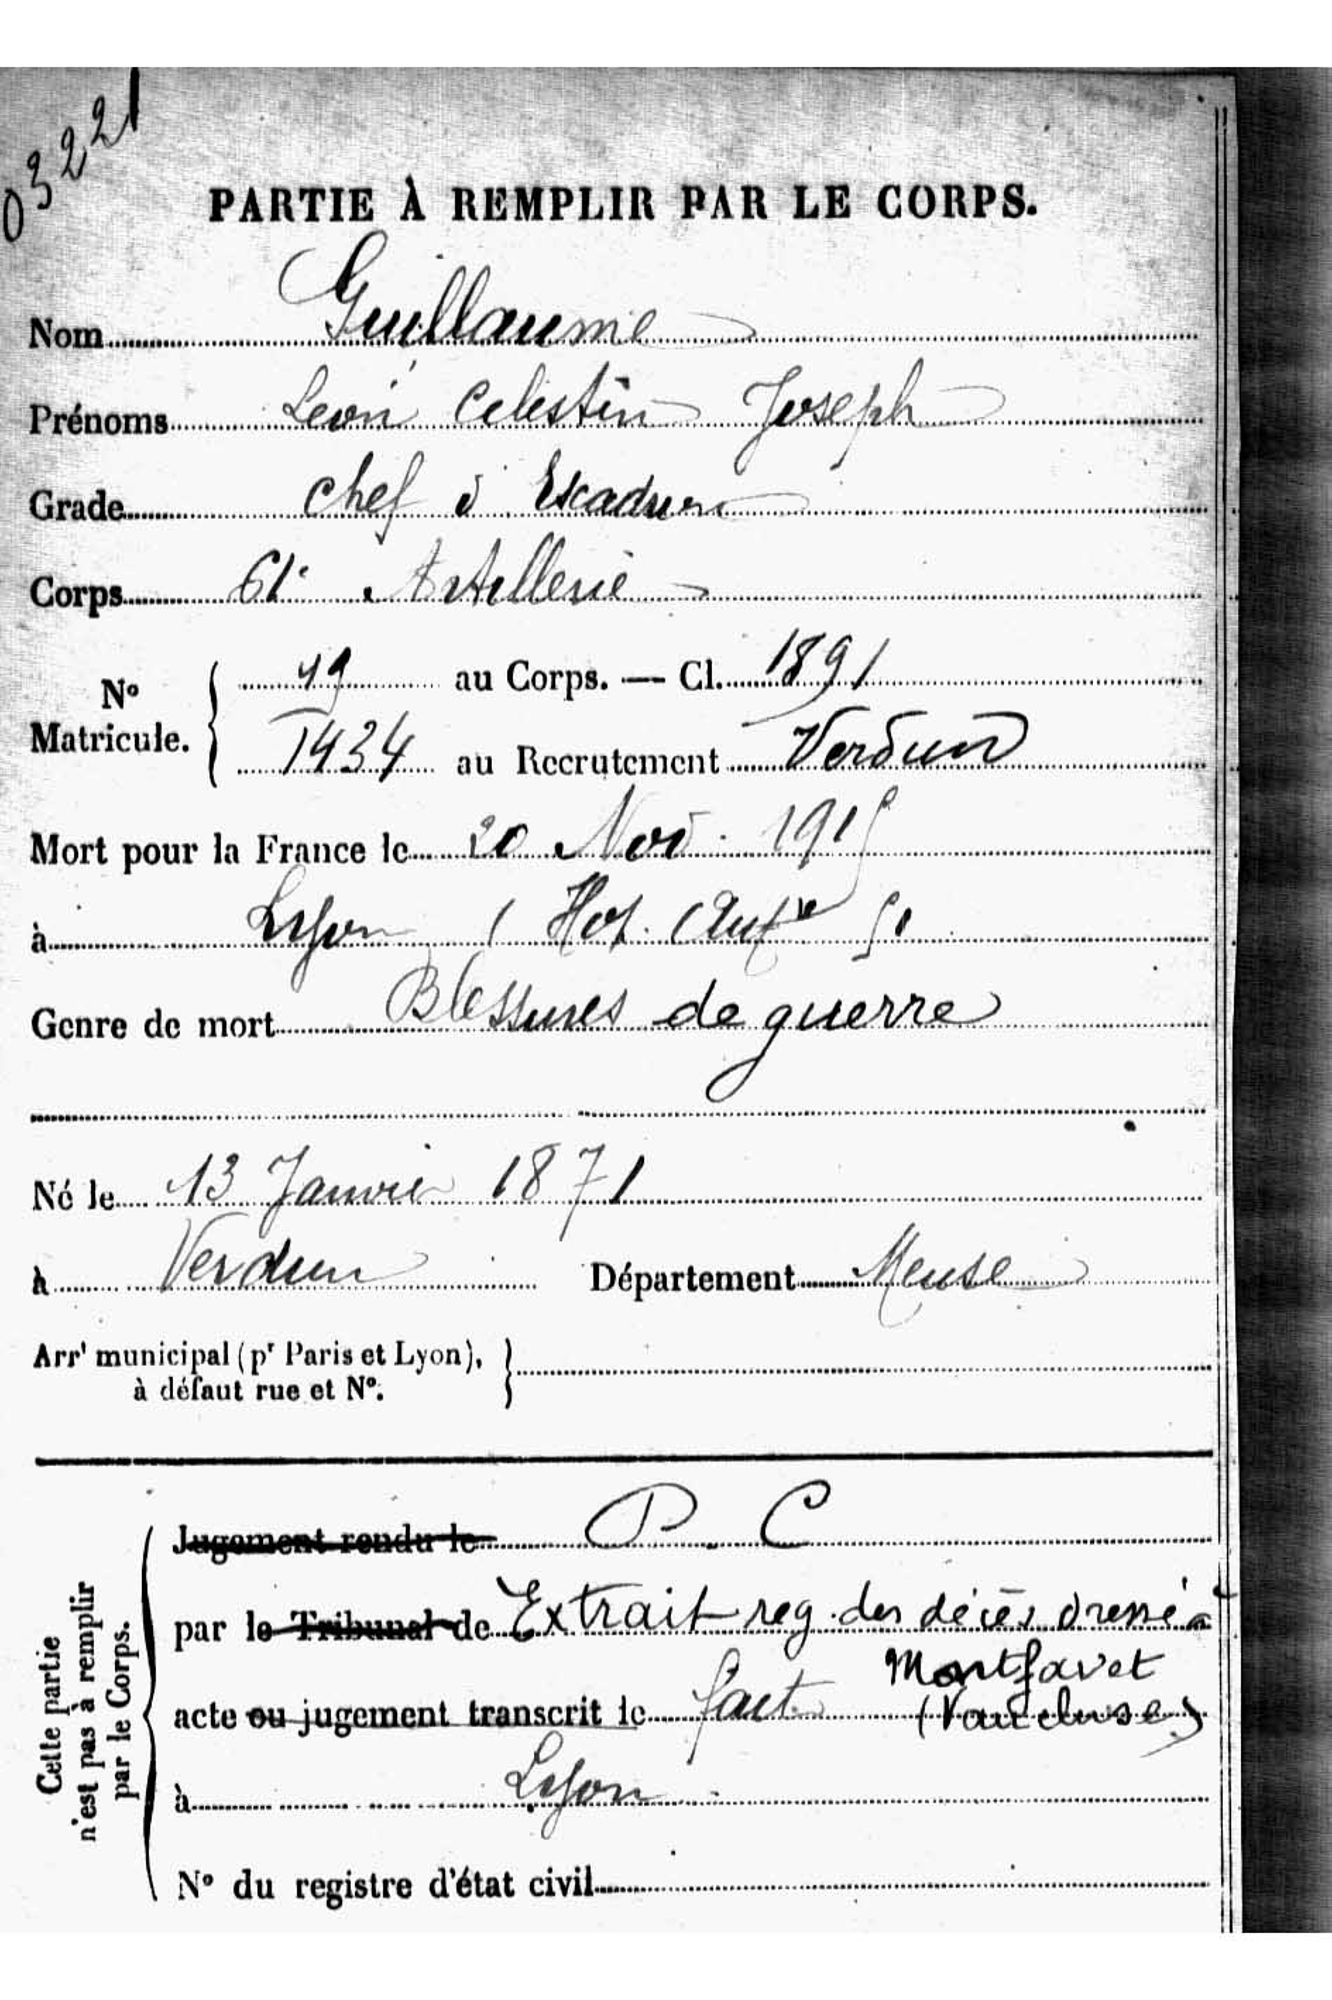 03221
PARTIE À REMPLIR PAR LE CORPS.
Nom Guillaume
Prénoms Léon Celestin Joseph
Grade Chef d'Escadron
Corps 61e Artillerie
No Matricule. { 19 au Corps. — Cl. 1891
1434 au Recrutement Verdun
Mort pour la France le 20 Nov. 1915
à Lyon ( Hop.
Genre de mort Blessures de guerre
Né le 13 Janvier 1871
à Verdun Département Meuse
Arrt municipal (pr Paris et Lyon),
à défaut rue et No.
Cette partie
n'est pas à remplir
par le Corps.
Jugement rendu le P. C
par le Tribunal de Extrait reg. des décès dressé à
Montfavet
acte ou jugement transcrit le fait (Vaucluse)
à Lyon
No du registre d'état civil